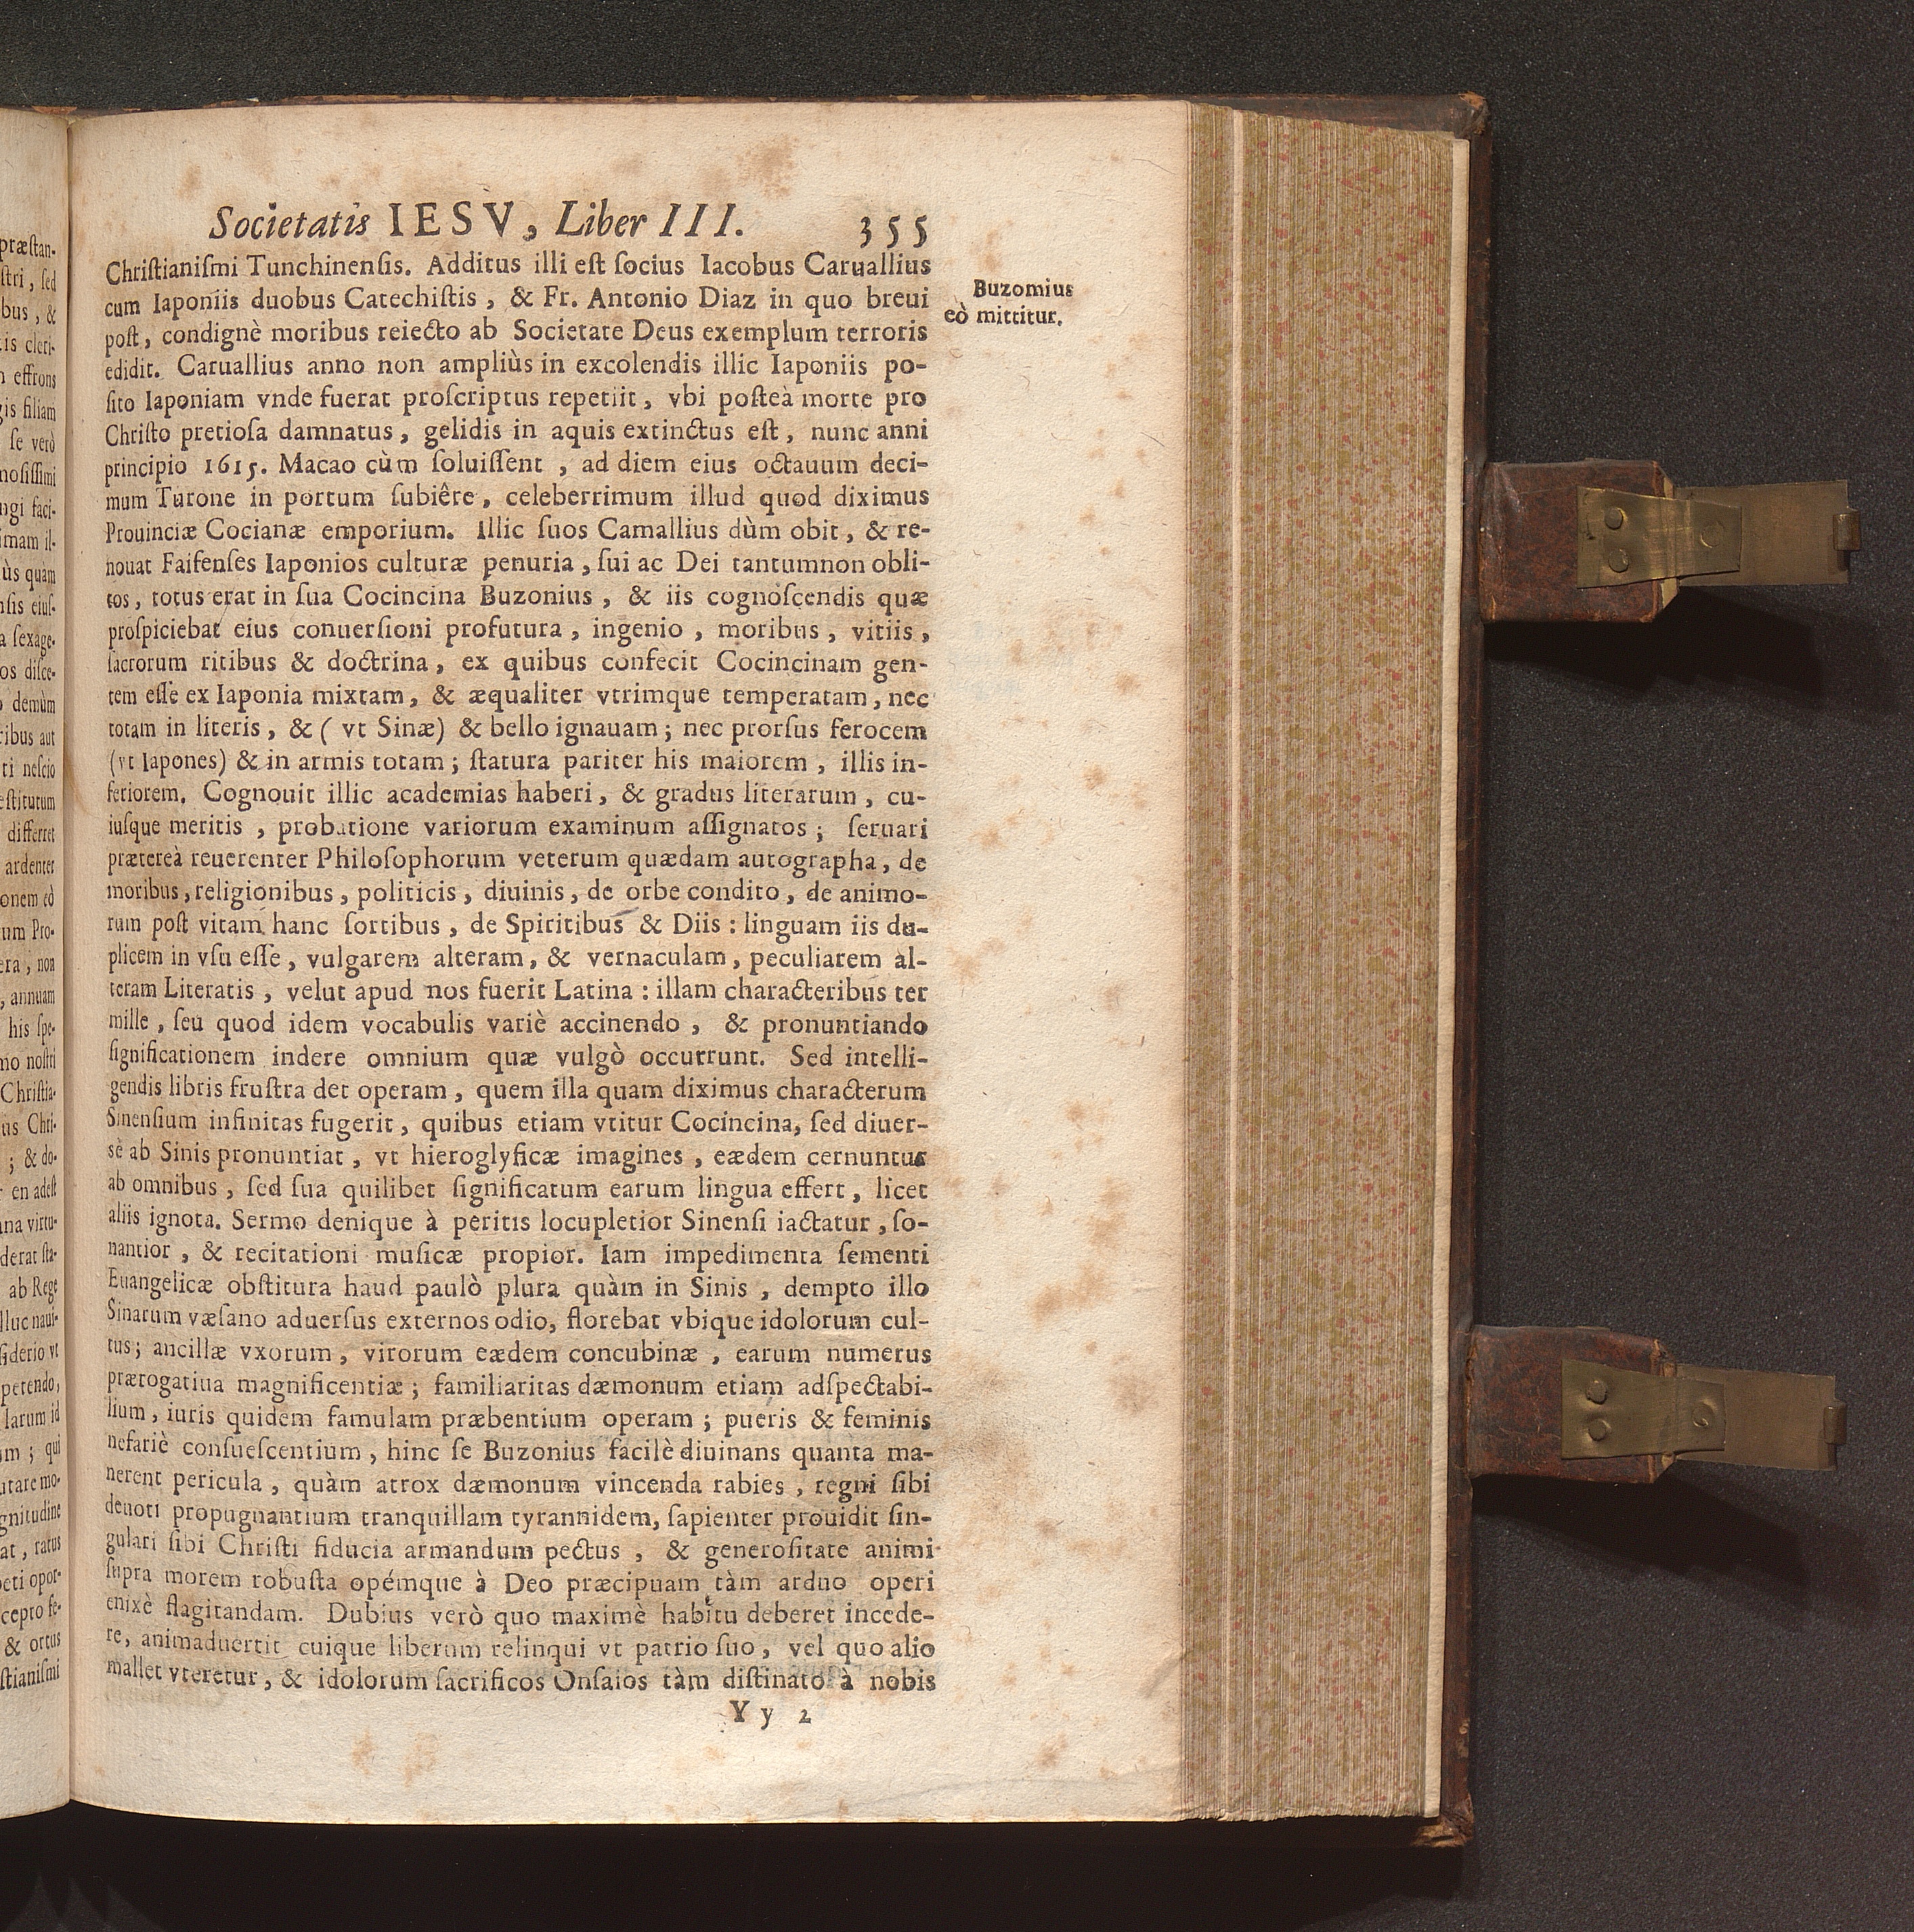 Societatis IESV, Liber III. 355
Christianiſmi Tunchinenſis. Additus illi eſt ſocius Iacobus Caruallius
cum Iaponiis duobus Catechiſtis, & Fr. Antonio Diaz in quo breui
poſt, condignè moribus reiecto ab Societate Deus exemplum terroris
edidit. Caruallius anno non ampliùs in excolendis illic Iaponiis po-
ſito Iaponiam vnde fuerat proſcriptus repetiit, vbi poſteà morte pro
Chriſto pretioſa damnatus, gelidis in aquis extinctus eſt, nunc anni
principio 1615. Macao cùm ſoluiſſent, ad diem eius octauum deci-
mum Turone in portum ſubiêre, celeberrimum illud quod diximus
Prouinciæ Cocianæ emporium. Illic ſuos Camallius dùm obit, & re-
nouat Faifenſes Iaponios culturæ penuria, ſui ac Dei tantumnon obli-
tos, totus erat in ſua Cocincina Buzonius, & iis cognoſcendis quæ
proſpiciebat eius conuerſioni profutura, ingenio, moribus, vitiis,
ſacrorum ritibus & doctrina, ex quibus confecit Cocincinam gen-
tem eſſe ex Iaponia mixtam, & æqualiter vtrimque temperatam, nec
totam in literis, & (vt Sinæ) & bello ignauam; nec prorſus ferocem
(vt Iapones) & in armis totam; ſtatura pariter his maiorem, illis in-
feriorem. Cognouit illic academias haberi, & gradus literarum, cu-
iuſque meritis, probatione variorum examinum aſſignatos; ſeruari
prætereà reuerenter Philoſophorum veterum quædam autographa, de
moribus, religionibus, politicis, diuinis, de orbe condito, de animo-
rum poſt vitam hanc ſortibus, de Spiritibus & Diis: linguam iis du-
plicem in vſu eſſe, vulgarem alteram, & vernaculam, peculiarem al-
teram Literatis, velut apud nos fuerit Latina: illam characteribus ter
mille, ſeu quod idem vocabulis variè accinendo, & pronuntiando
ſignificationem indere omnium quæ vulgò occurrunt. Sed intelli-
gendis libris fruſtra det operam, quem illa quam diximus characterum
Sinenſium infinitas fugerit, quibus etiam vtitur Cocincina, ſed diuer-
sè ab Sinis pronuntiat, vt hieroglyficæ imagines, eædem cernuntur
ab omnibus, ſed ſua quilibet ſignificatum earum lingua effert, licet
aliis ignota. Sermo denique à peritis locupletior Sinenſi iactatur, ſo-
nantior, & recitationi muſicæ propior. Iam impedimenta ſementi
Euangelicæ obſtitura haud paulò plura quàm in Sinis, dempto illo
Sinarum væſano aduerſus externos odio, florebat vbique idolorum cul-
tus; ancillæ vxorum, virorum eædem concubinæ, earum numerus
prærogatiua magnificentiæ; familiaritas dæmonum etiam adſpectabi-
lium, iuris quidem famulam præbentium operam; pueris & feminis
nefariè conſueſcentium, hinc ſe Buzonius facilè diuinans quanta ma-
nerent pericula, quàm atrox dæmonum vincenda rabies, regni ſibi
deuoti propugnantium tranquillam tyrannidem, ſapienter prouidit ſin-
gulari ſibi Chriſti fiducia armandum pectus, & generoſitate animi
ſupra morem robuſta opémque à Deo præcipuam tàm arduo operi
enixè flagitandam. Dubius verò quo maximè habitu deberet incede-
re, animaduertit cuique liberum relinqui vt patrio ſuo, vel quo alio
mallet vteretur, & idolorum ſacrificos Onſaios tàm diſtinato à nobis
Yy 2
Buzomius
eò mittitur.